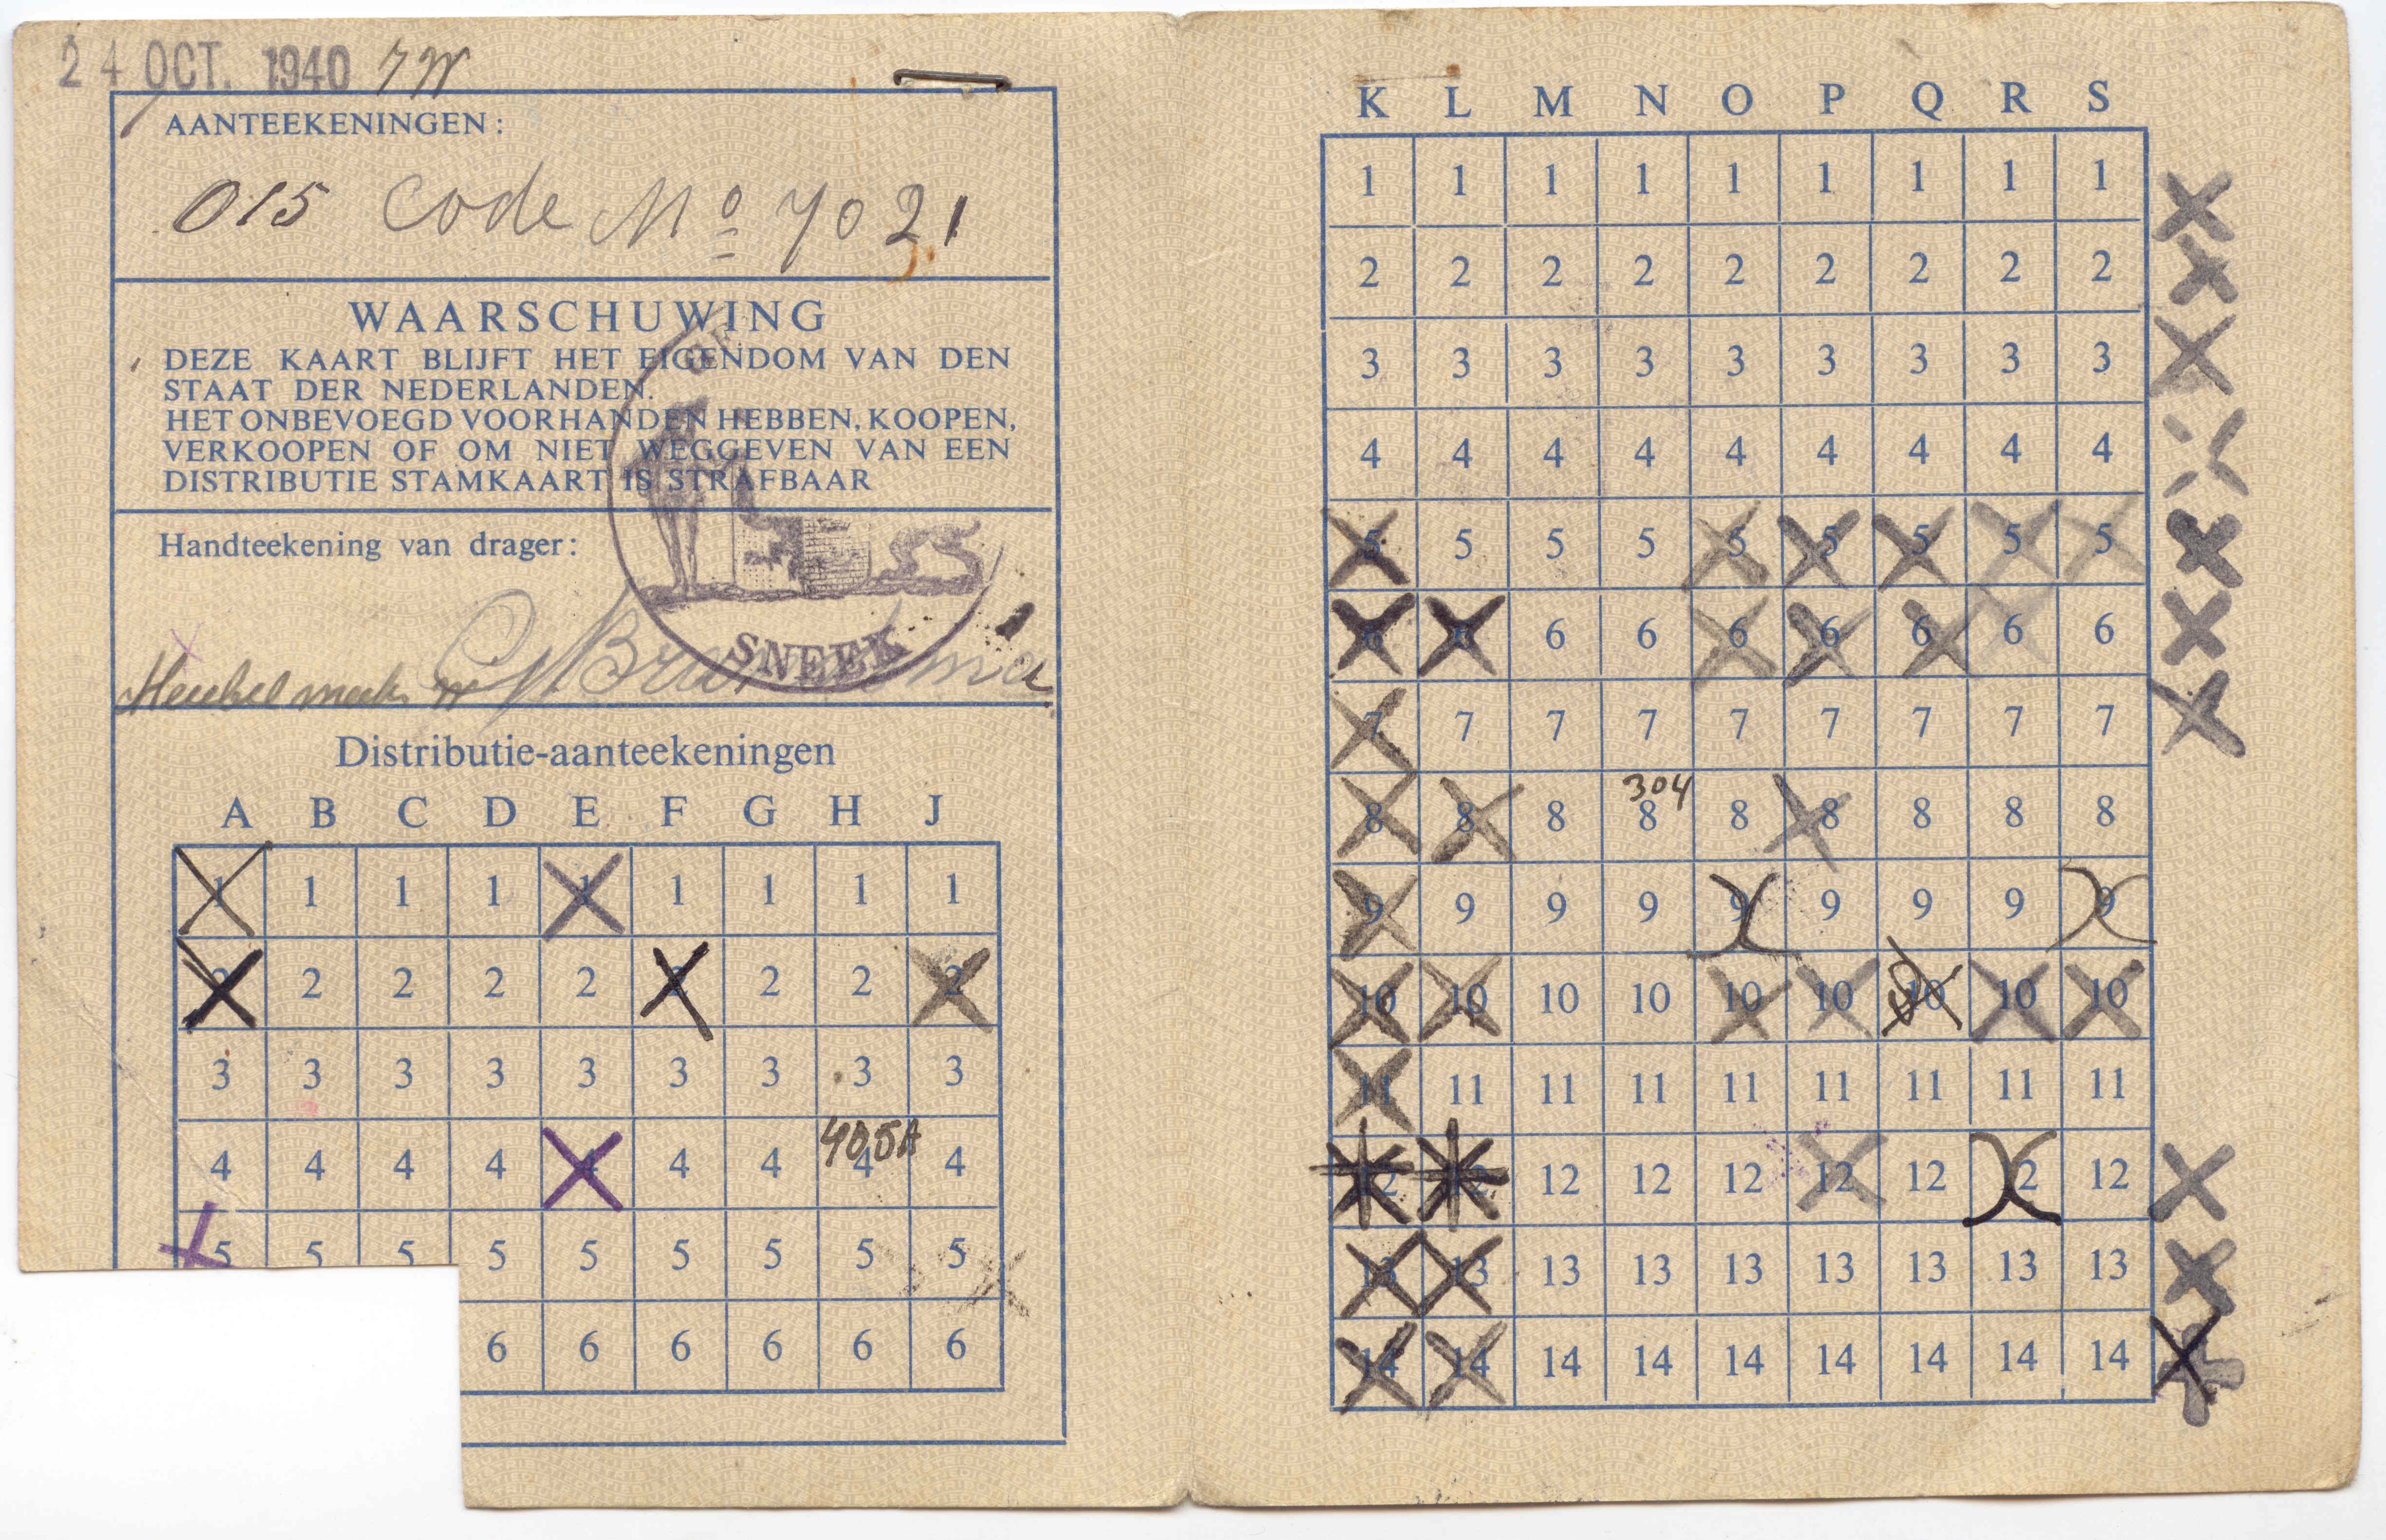 24 OCT. 1940
AANTEEKENINGEN:
015 Code No 7021
WAARSCHUWING
DEZE KAART BLIJFT HET EIGENDOM VAN DEN
STAAT DER NEDERLANDEN.
HET ONBEVOEGD VOORHANDEN HEBBEN, KOOPEN,
VERKOOPEN OF OM NIET WEGGEVEN VAN EEN
DISTRIBUTIE STAMKAART IS STRAFBAAR
Handteekening van drager:
SNEEK
Distributie-aanteekeningen
A B C D E F G H J
1 1 1 1 1 1 1 1 1
2 2 2 2 2 2 2 2 2
3 3 3 3 3 3 3 3 3
405A
4 4 4 4 4 4 4 4 4
5 5 5 5 5 5 5 5 5
6 6 6 6 6 6
K L M N O P Q R S
1 1 1 1 1 1 1 1 1
2 2 2 2 2 2 2 2 2
3 3 3 3 3 3 3 3 3
4 4 4 4 4 4 4 4 4
5 5 5 5 5 5 5 5 5
6 6 6 6 6 6 6 6 6
7 7 7 7 7 7 7 7 7
304
8 8 8 8 8 8 8 8 8
9 9 9 9 9 9 9 9 9
10 10 10 10 10 10 10 10 10
11 11 11 11 11 11 11 11 11
12 12 12 12 12 12 12 12 12
13 13 13 13 13 13 13 13 13
14 14 14 14 14 14 14 14 14